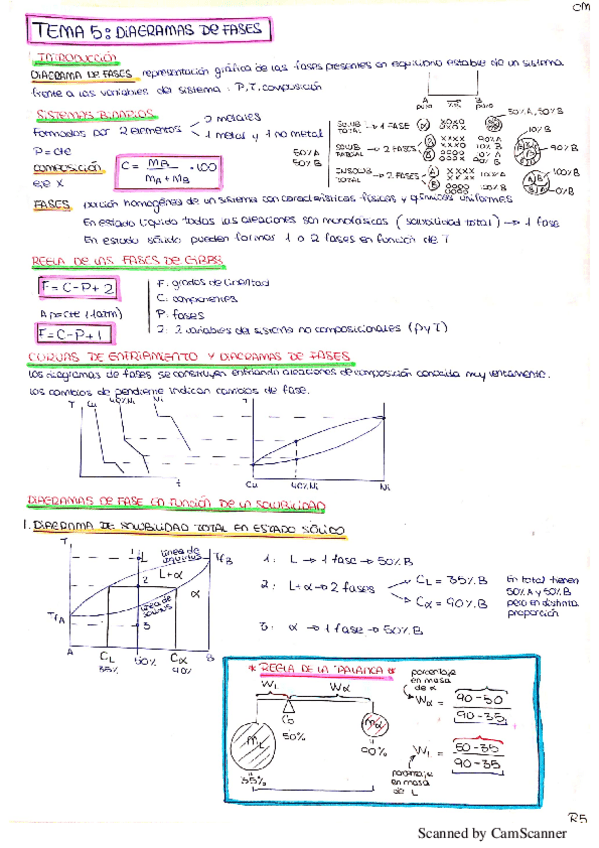 OM
TEMA 5: DIAGRAMAS DE FASES
INTRODUCCIÓN
DIAGRAMA DE FASES representación gráfica de las fases presentes en equilibrio estable de un sistema
frente a las variables del sistema: P, T, composición
A puro %B B puro
SISTEMAS BINARIOS
Formados por 2 elementos
2 metales
1 metal y 1 no metal
P = cte
COMPOSICIÓN
eje X
C = MB / MA + MB · 100
50%A
50%B
SOLUB TOTAL → 1 FASE
50%A, 50%B
SOLUB PARCIAL → 2 FASES
90%A
10%B
10%B
90%B
INSOLUB TOTAL → 2 FASES
100%B
100%B
0%B
FASES porción homogénea de un sistema con características físicas y químicas uniformes
En estado líquido todas las aleaciones son monofásicas (solubilidad total) → 1 fase
En estado sólido pueden formar 1 o 2 fases en función de T
REGLA DE LAS FASES DE GIBBS
F = C-P+2
A p=cte (1atm)
F = C-P+1
F: grados de libertad
C: componentes
P: fases
2: 2 variables del sistema no composicionales (P y T)
CURVAS DE ENFRIAMIENTO Y DIAGRAMAS DE FASES
Los diagramas de fases se construyen enfriando aleaciones de composición conocida muy lentamente.
Los cambios de pendiente indican cambios de fase.
T Cu 40%Ni Ni
t
T
Cu 40%Ni Ni
DIAGRAMAS DE FASE EN FUNCIÓN DE LA SOLUBILIDAD
1. DIAGRAMA DE SOLUBILIDAD TOTAL EN ESTADO SÓLIDO
T
1 L línea de líquidus TfB
L+α 2 α
línea de sólidus
TfA 3
A CL 50% Cα B
35% 90%
1: L → 1 fase → 50%B
2: L+α → 2 fases
CL = 35%B
Cα = 90%B
En total tienen
50%A y 50%B
pero en distinta
proporción
3: α → 1 fase → 50%B
* REGLA DE LA PALANCA *
WL Wα
Co
50%
ML
35%
Mα
90%
porcentaje
en masa
de α
Wα = 90-50 / 90-35
WL = 50-35 / 90-35
porcentaje
en masa
de L
R5
Scanned by CamScanner